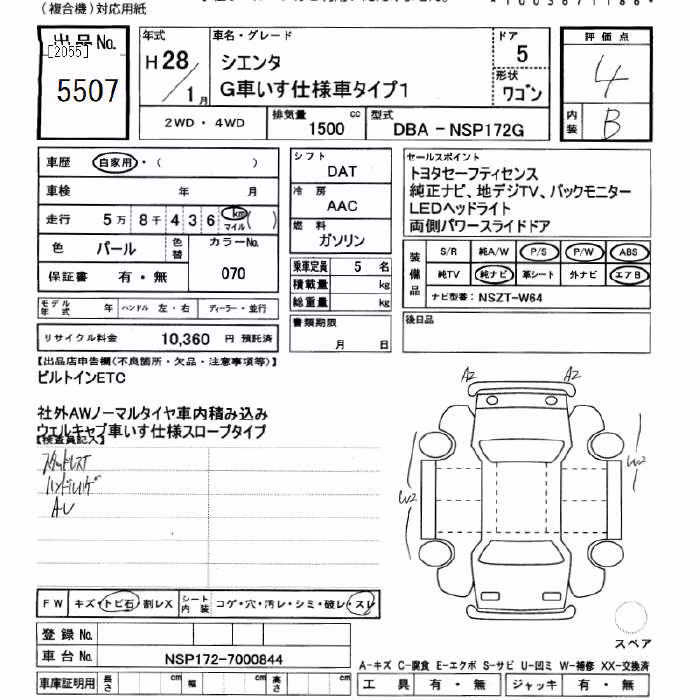 (複合機)対応用紙
出品No.
[2055]
5507
年式
H 28/1月
車名・グレード
シエンタ
G車いす仕様車タイプ1
ドア
5
形状
ワゴン
評価点
4
内装
B
2WD・4WD
排気量
1500 cc
型式
DBA-NSP172G
車歴 自家用・( )
車検 年 月
走行 5万 8千 4 3 6 km マイル ( )
色 パール 色替 カラーNo.
070
保証書 有・無
モデル年式 年 ハンドル 左・右 ディーラー・並行
リサイクル料金 10,360 円 預託済
シフト
DAT
冷房
AAC
燃料
ガソリン
乗車定員 5 名
積載量 kg
総重量 kg
書類期限
月 日
セールスポイント
トヨタセーフティセンス
純正ナビ、地デジTV、バックモニター
LEDヘッドライト
両側パワースライドドア
装備品
S/R 純A/W P/S P/W ABS
純TV 純ナビ 革シート 外ナビ エアB
ナビ型番: NSZT-W64
後日品
【出品店申告欄(不良箇所・欠品・注意事項等)】
ビルトインETC
社外AWノーマルタイヤ車内積み込み
ウェルキャブ車いす仕様スロープタイプ
【検査員記入】
ハンドルハゲ
A2 A2
W2 W2
スペア
FW キズ・トビ石・割レX シート内装 コゲ・穴・汚レ・シミ・破レ・スレ
登録No.
車台No. NSP172-7000844
車庫証明用 長さ cm 幅 cm 高さ cm
A-キズ C-腐食 E-エクボ S-サビ U-凹ミ W-補修 XX-交換済
工具 有・無 ジャッキ 有・無